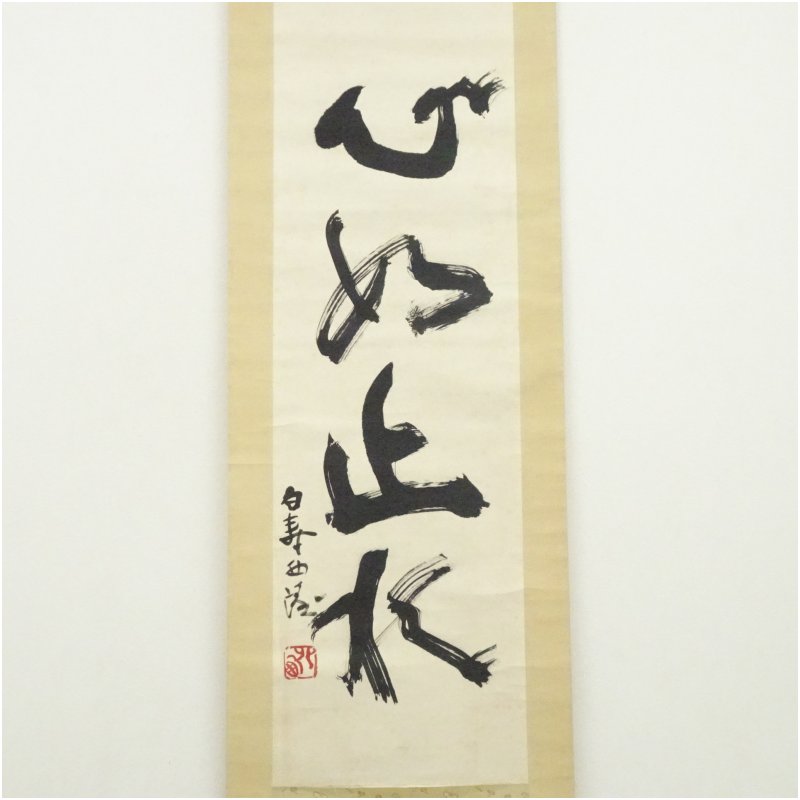 心如止水
白寿西